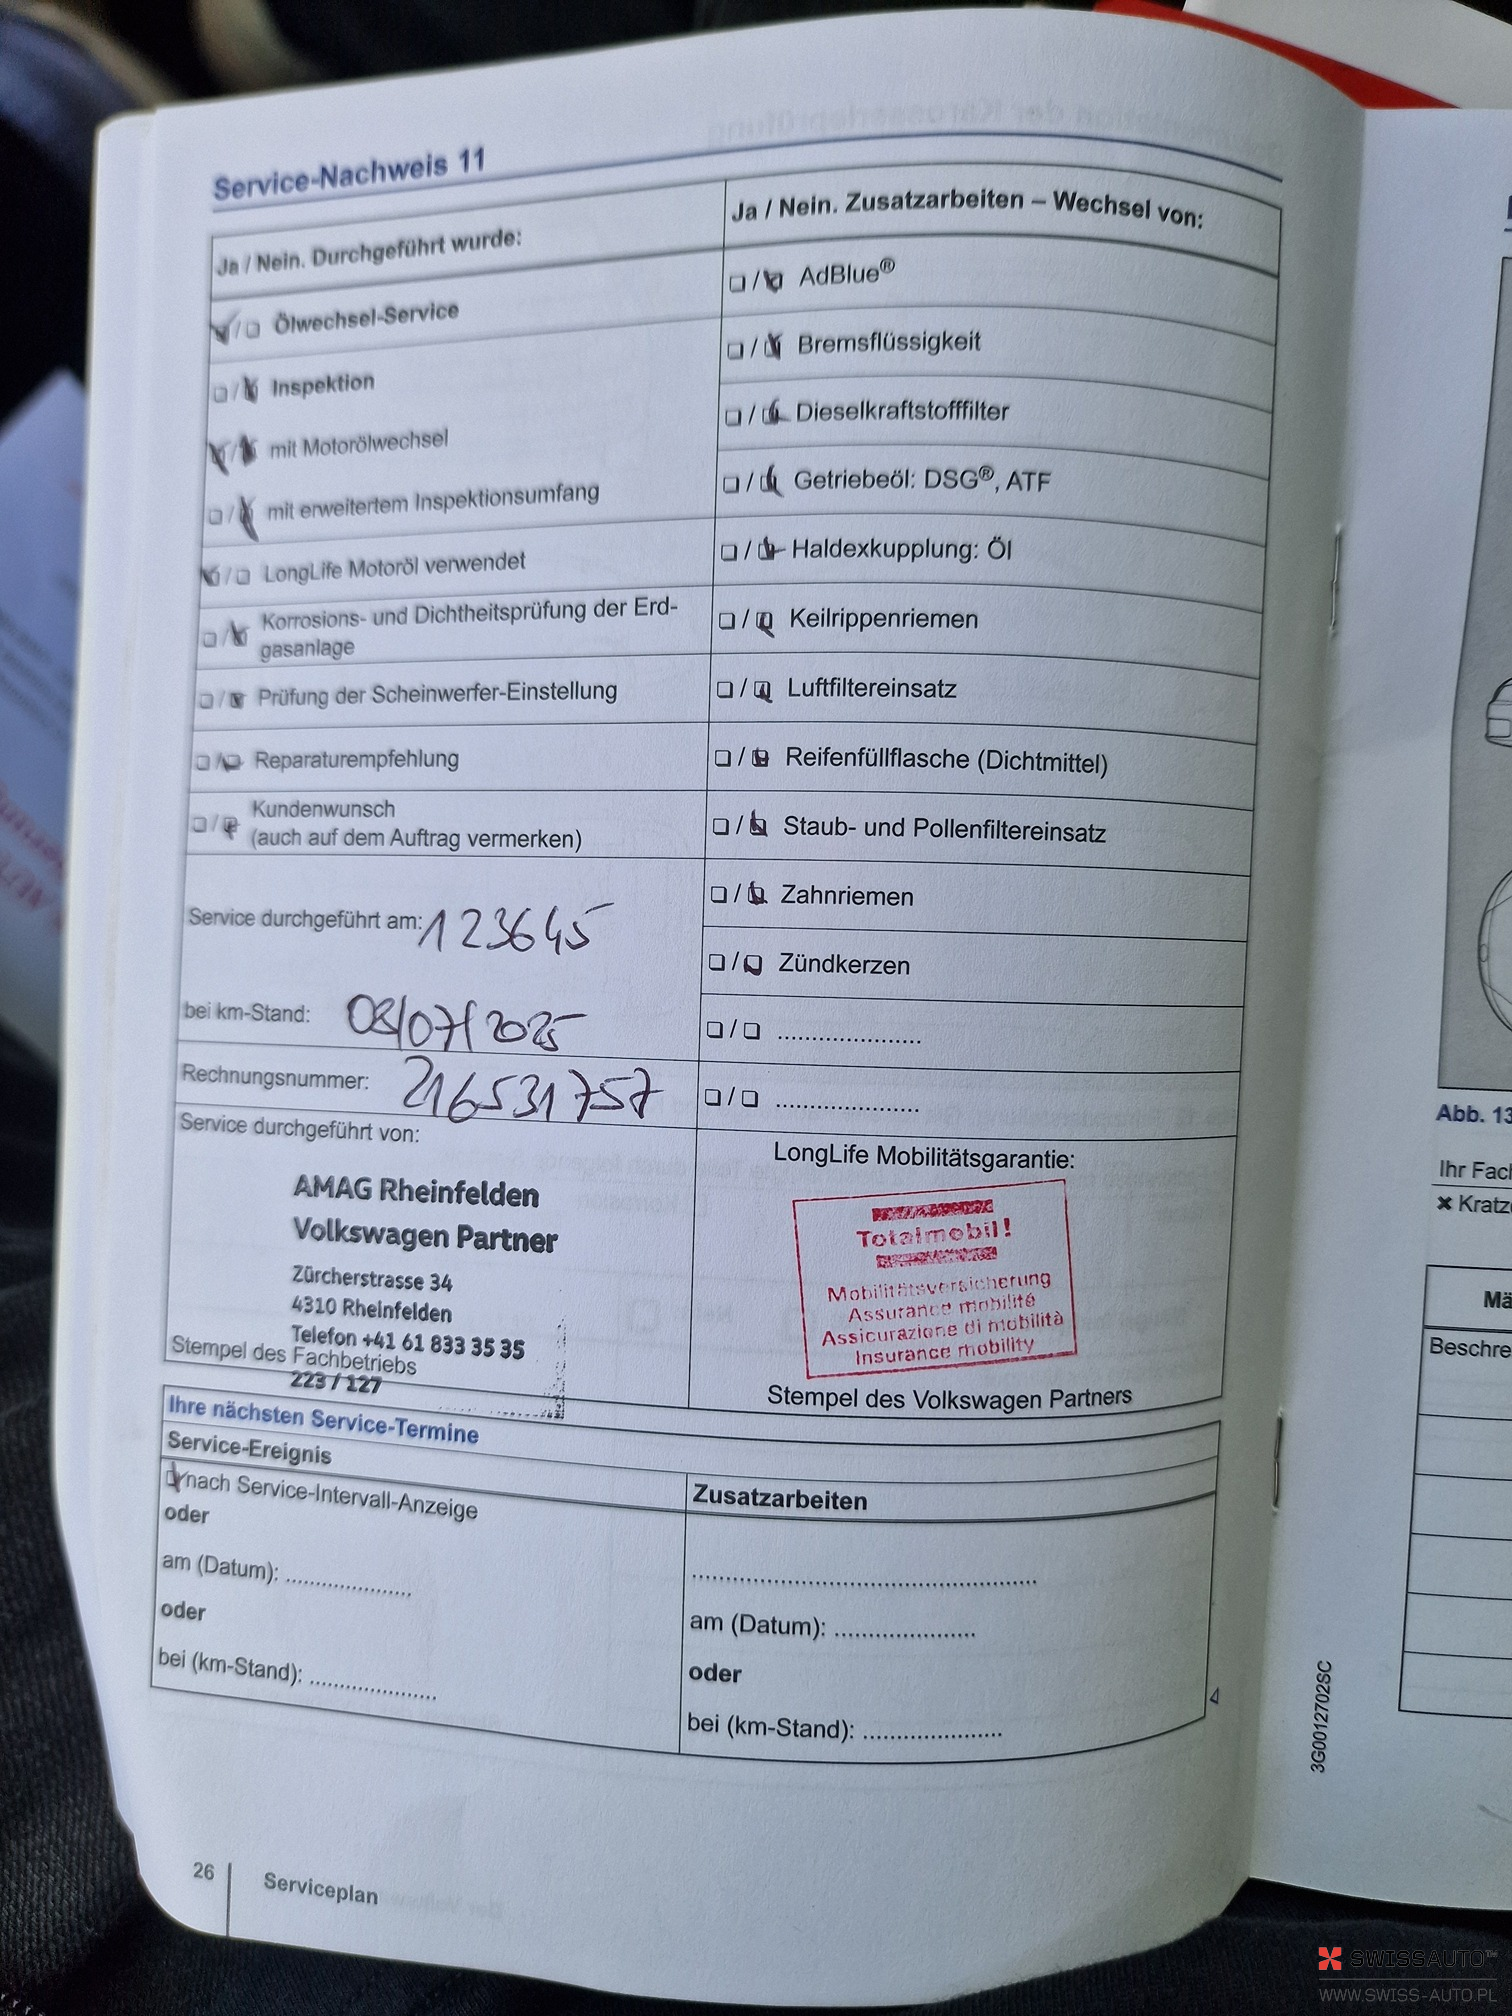 Service-Nachweis 11
Ja / Nein. Durchgeführt wurde:
❏/❏ Ölwechsel-Service
❏/❏ Inspektion
❏/❏ mit Motorölwechsel
❏/❏ mit erweitertem Inspektionsumfang
❏/❏ LongLife Motoröl verwendet
❏/❏ Korrosions- und Dichtheitsprüfung der Erd-
gasanlage
❏/❏ Prüfung der Scheinwerfer-Einstellung
❏/❏ Reparaturempfehlung
❏/❏ Kundenwunsch
(auch auf dem Auftrag vermerken)
Service durchgeführt am: 123645
bei km-Stand: 08/07/2025
Rechnungsnummer: 216531757
Service durchgeführt von:
AMAG Rheinfelden
Volkswagen Partner
Zürcherstrasse 34
4310 Rheinfelden
Telefon +41 61 833 35 35
Stempel des Fachbetriebs
223 / 127
Ja / Nein. Zusatzarbeiten – Wechsel von:
❏/❏ AdBlue®
❏/❏ Bremsflüssigkeit
❏/❏ Dieselkraftstofffilter
❏/❏ Getriebeöl: DSG®, ATF
❏/❏ Haldexkupplung: Öl
❏/❏ Keilrippenriemen
❏/❏ Luftfiltereinsatz
❏/❏ Reifenfüllflasche (Dichtmittel)
❏/❏ Staub- und Pollenfiltereinsatz
❏/❏ Zahnriemen
❏/❏ Zündkerzen
❏/❏ .....................
❏/❏ .....................
LongLife Mobilitätsgarantie:
Totalmobil!
Mobilitätsversicherung
Assurance mobilité
Assicurazione di mobilità
Insurance mobility
Stempel des Volkswagen Partners
Ihre nächsten Service-Termine
Service-Ereignis
❏ nach Service-Intervall-Anzeige
oder
am (Datum): ...................
oder
bei (km-Stand): ...................
Zusatzarbeiten
....................................................
am (Datum): .....................
oder
bei (km-Stand): .....................
26
Serviceplan
3G0012702SC
Abb. 13
Ihr Fach
✖ Kratz
Mä
Beschre
SWISSAUTO™
WWW.SWISS-AUTO.PL